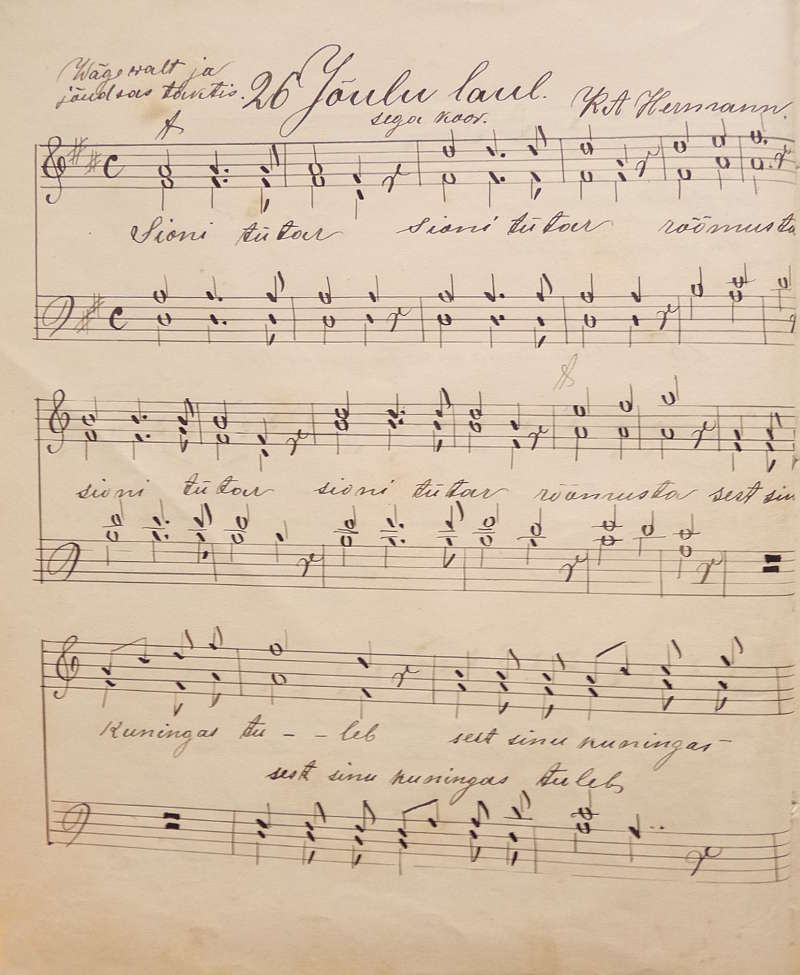 Wägewalt ja
jõudsas taktis.
26 Jõulu laul.
sega koor.
KA Hermann.
Sioni tütar sioni tütar rõõmusta
sioni tütar sioni tütar rõõmusta sest sin
kuningas tu - - leb sest sinu kuningas -
sest sinu kuningas tuleb